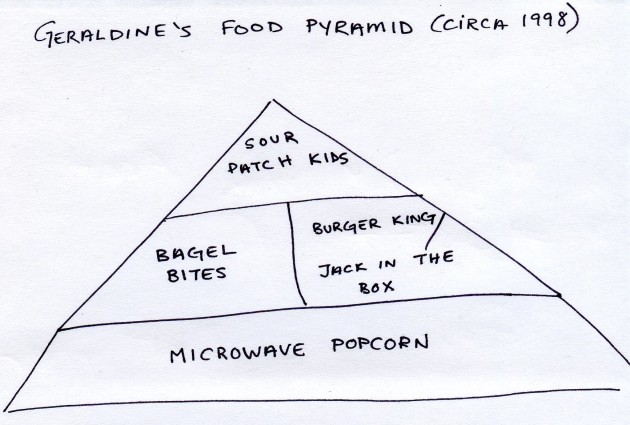 GERALDINE'S FOOD PYRAMID (CIRCA 1998)
SOUR
PATCH KIDS
BAGEL
BITES
BURGER KING/
JACK IN THE
BOX
MICROWAVE POPCORN